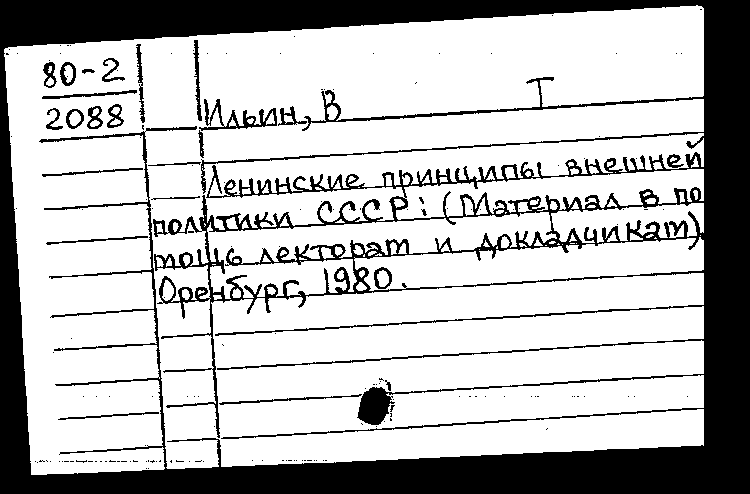 80-2
2088
Ильин, В Т
Ленинские принципы внешней
политики СССР: (Материал в по
мощь лекторам и докладчикам).
Оренбург, 1980.